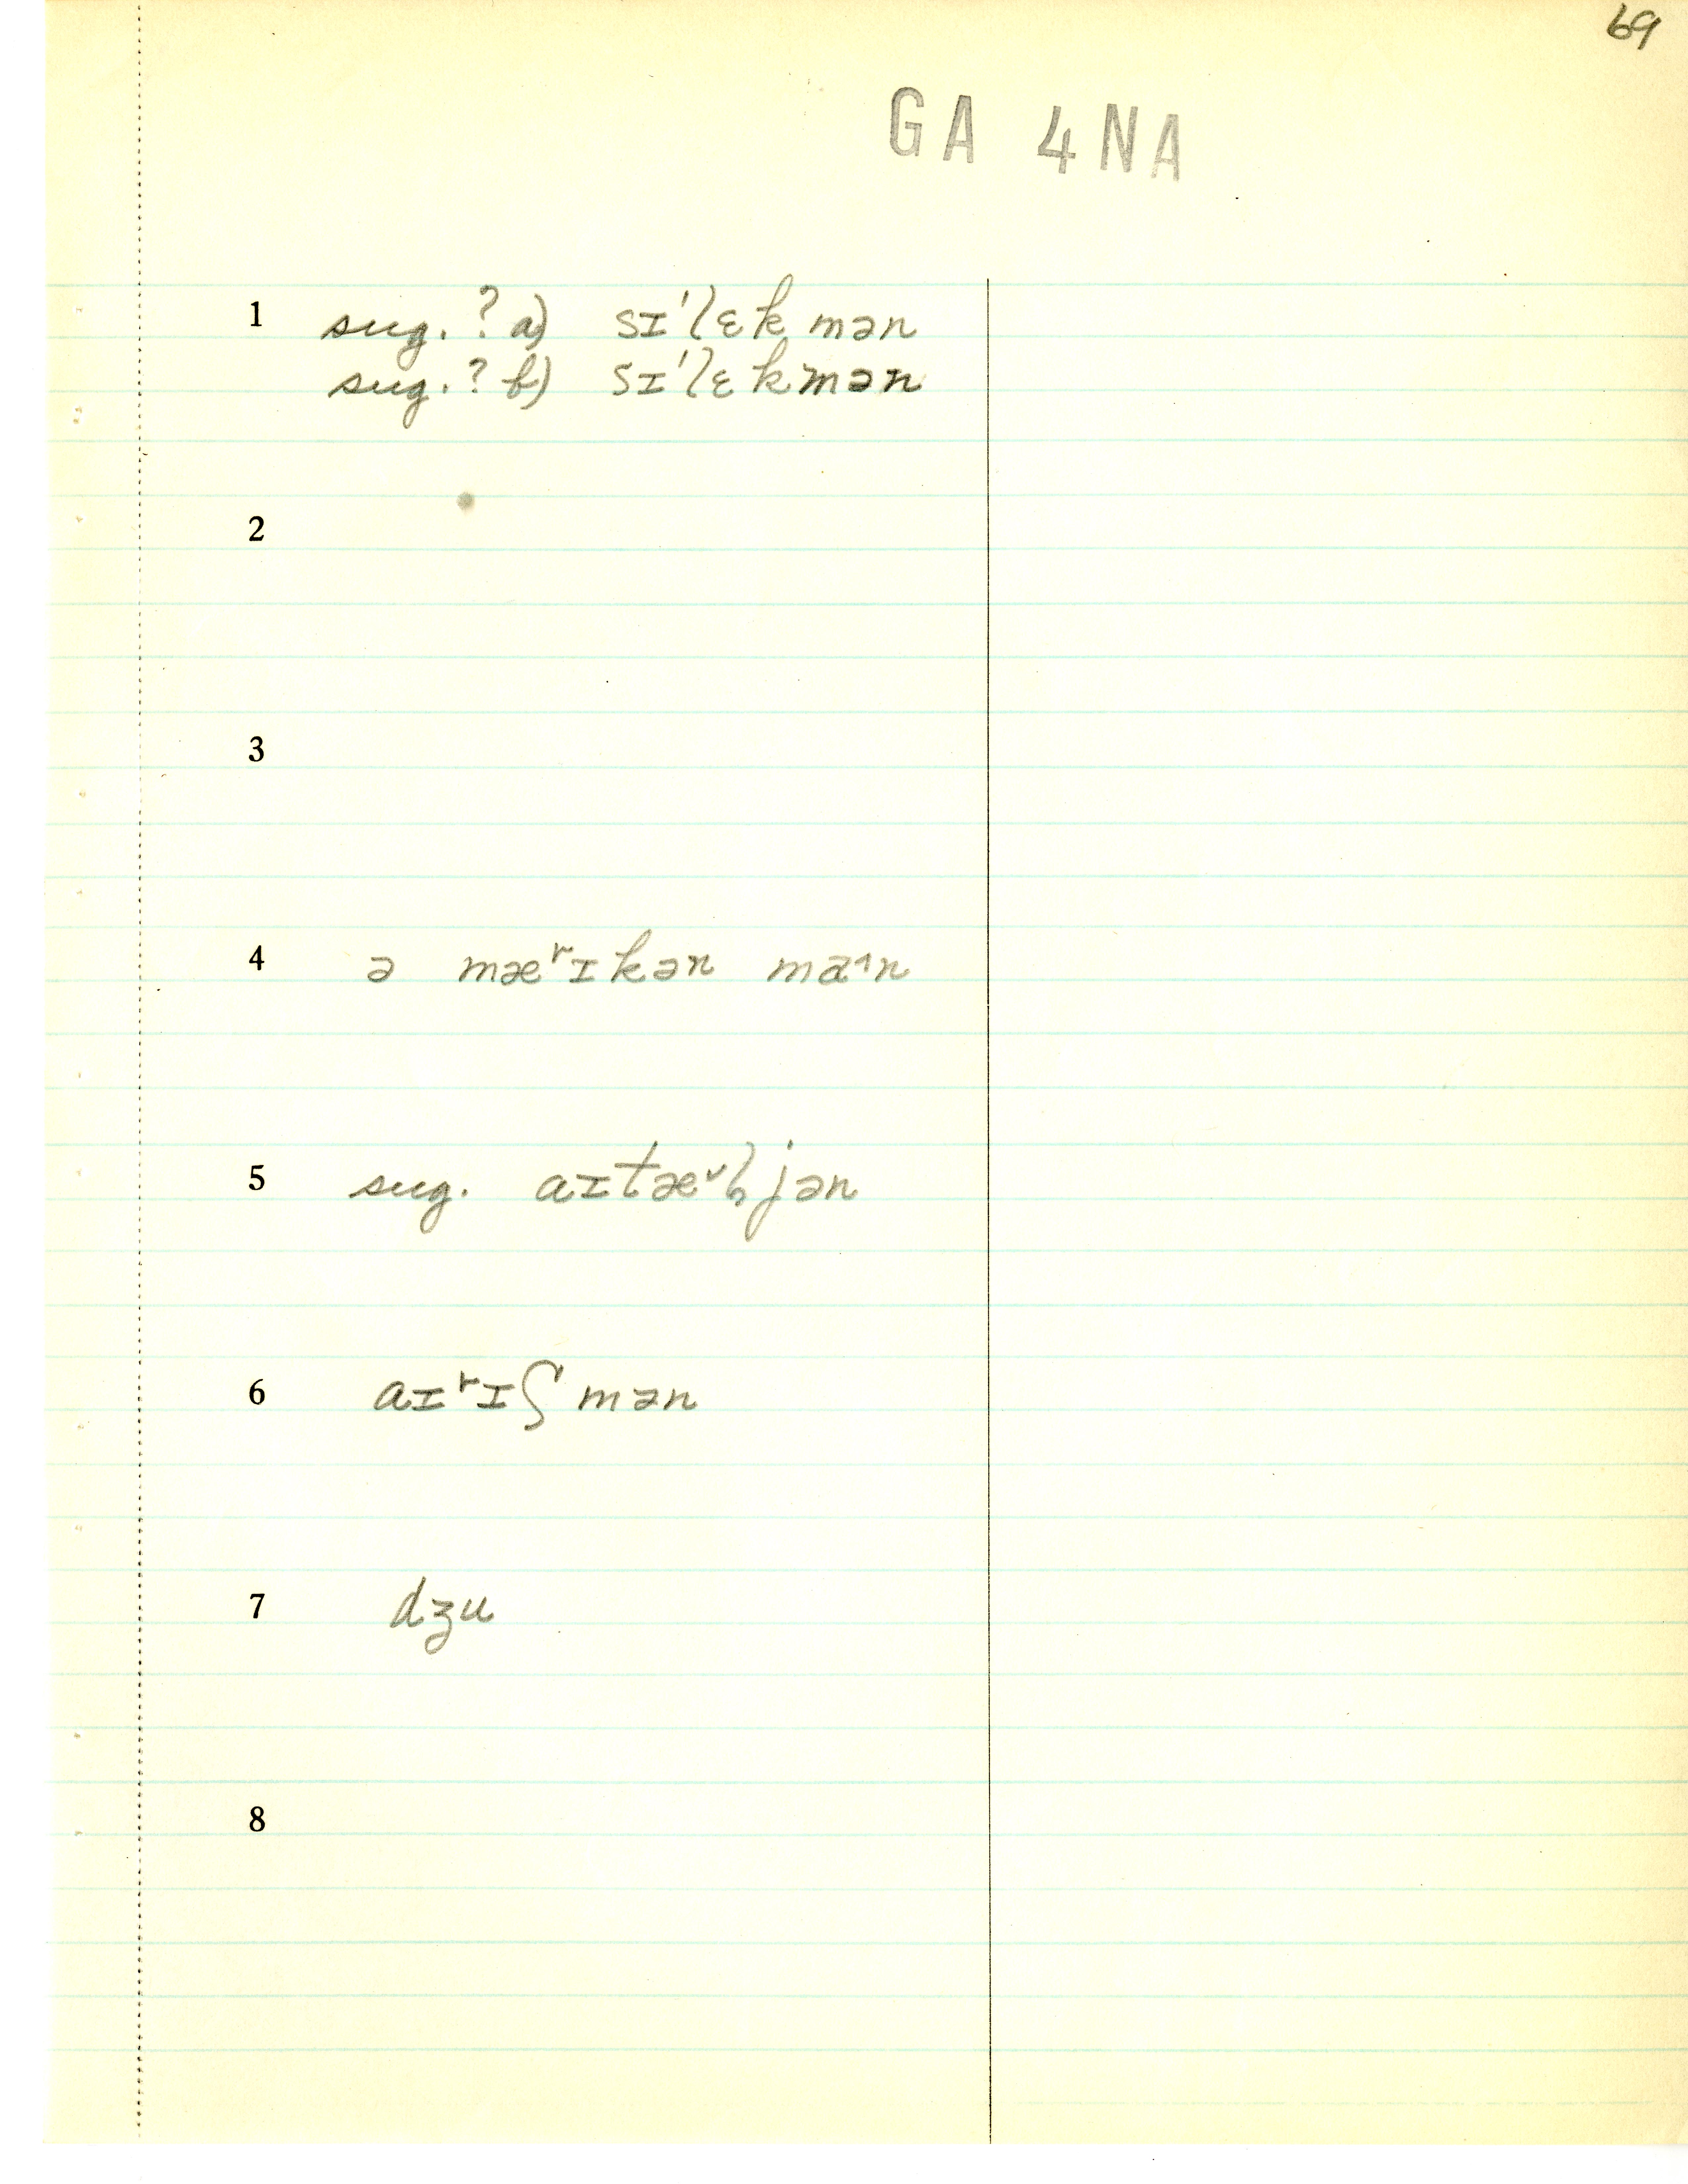 69
GA 4NA
1 sug. ? a) sɪ'lɛk mən
sug. ? b) sɪ'lɛkmən
2
3
4 ə mæʳɪkən ma˄n
5 sug. aɪtæ˅l̥jən
6 aɪʳɪʃmən
7 dʒu
8